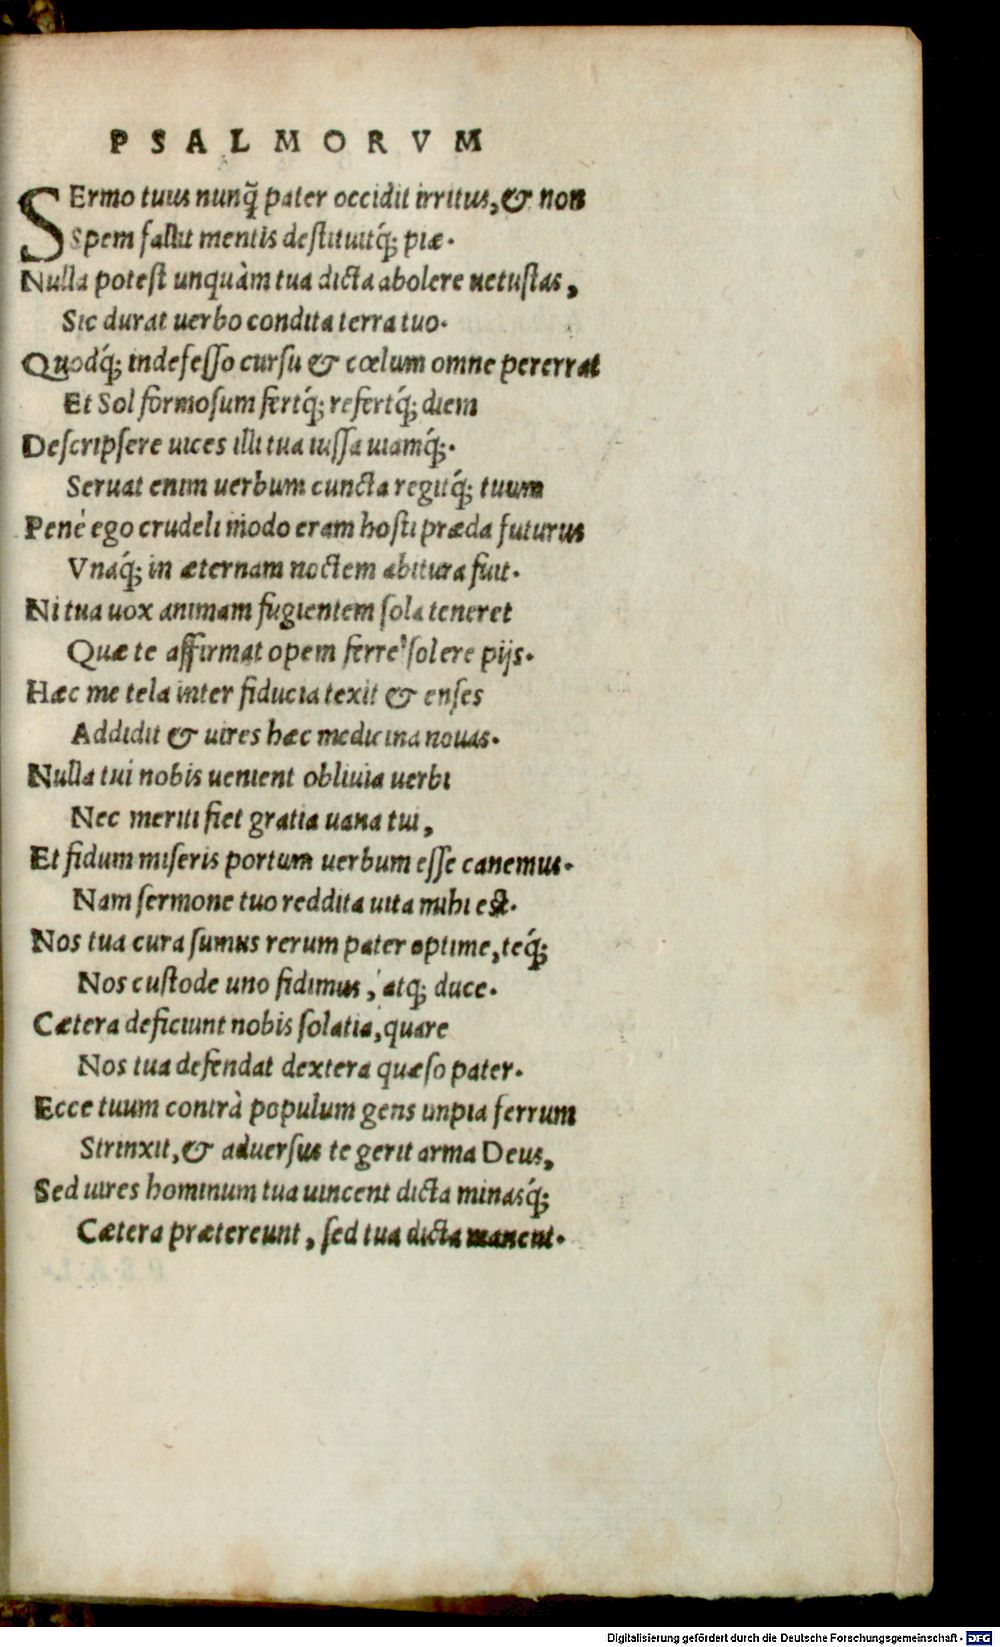 PSALMORVM
SErmo tuus nunq̃ pater occidit irritus, & non
Spem fallit mentis destituitq́; piæ.
Nulla potest unquàm tua dicta abolere uetustas,
Sic durat uerbo condita terra tuo.
Quodq́; indefesso cursu & cœlum omne pererrat
Et Sol formosum fertq́; refertq́; diem
Descripsere uices illi tua iussa uiamq́;.
Seruat enim uerbum cuncta regitq́; tuum
Penè ego crudeli modo eram hosti præda futurus
Vnaq́; in æternam noctem abitura fuit.
Ni tua uox animam fugientem sola teneret
Quæ te affirmat opem ferre solere pijs.
Hæc me tela inter fiducia texit & enses
Addidit & uires hæc medicina nouas.
Nulla tui nobis uenient obliuia uerbi
Nec meriti fiet gratia uana tui,
Et fidum miseris portum uerbum esse canemus.
Nam sermone tuo reddita uita mihi est.
Nos tua cura sumus rerum pater optime, teq́;
Nos custode uno fidimus, atq; duce.
Cætera deficiunt nobis solatia, quare
Nos tua defendat dextera quæso pater.
Ecce tuum contrà populum gens impia ferrum
Strinxit, & aduersus te gerit arma Deus,
Sed uires hominum tua uincent dicta minasq́;
Cætera prætereunt, sed tua dicta manent.
Digitalisierung gefördert durch die Deutsche Forschungsgemeinschaft - DFG